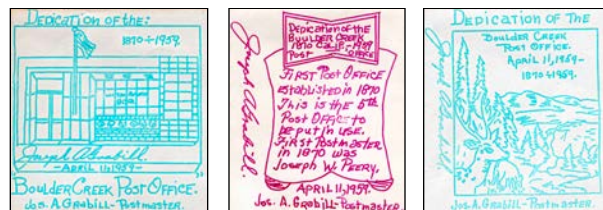 Dedication of the:
1870÷1959.
Joseph A Grabill.
-APRIL 11, 1959-
BOULDER CREEK POST OFFICE.
Jos. A. Grabill-Postmaster.
Dedication of the
Boulder Creek
1870 Calif.-1959
Post Office
Joseph A Grabill.
FIRST POST OFFICE
established in 1870
This is the 5th
Post Office to
be put in use.
First Postmaster
in 1870 was
Joseph W. Peery.
APRIL 11, 1959.
Jos. A. Grabill-Postmaster.
DEDICATION OF THE
BOULDER CREEK
POST OFFICE.
APRIL 11, 1959-
1870÷1959.
Joseph A Grabill.
Jos. A. Grabill-Postmaster.